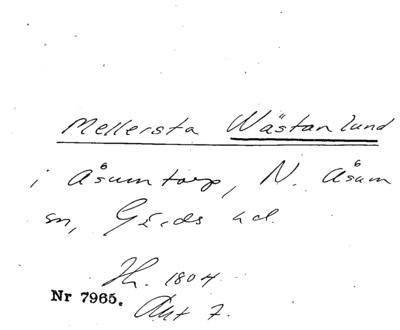 Mellersta Wästanlund
i Åsumtorp, N. Åsum
sn, Gärds hd.
Hr. 1804
Nr 7965. Akt 7.